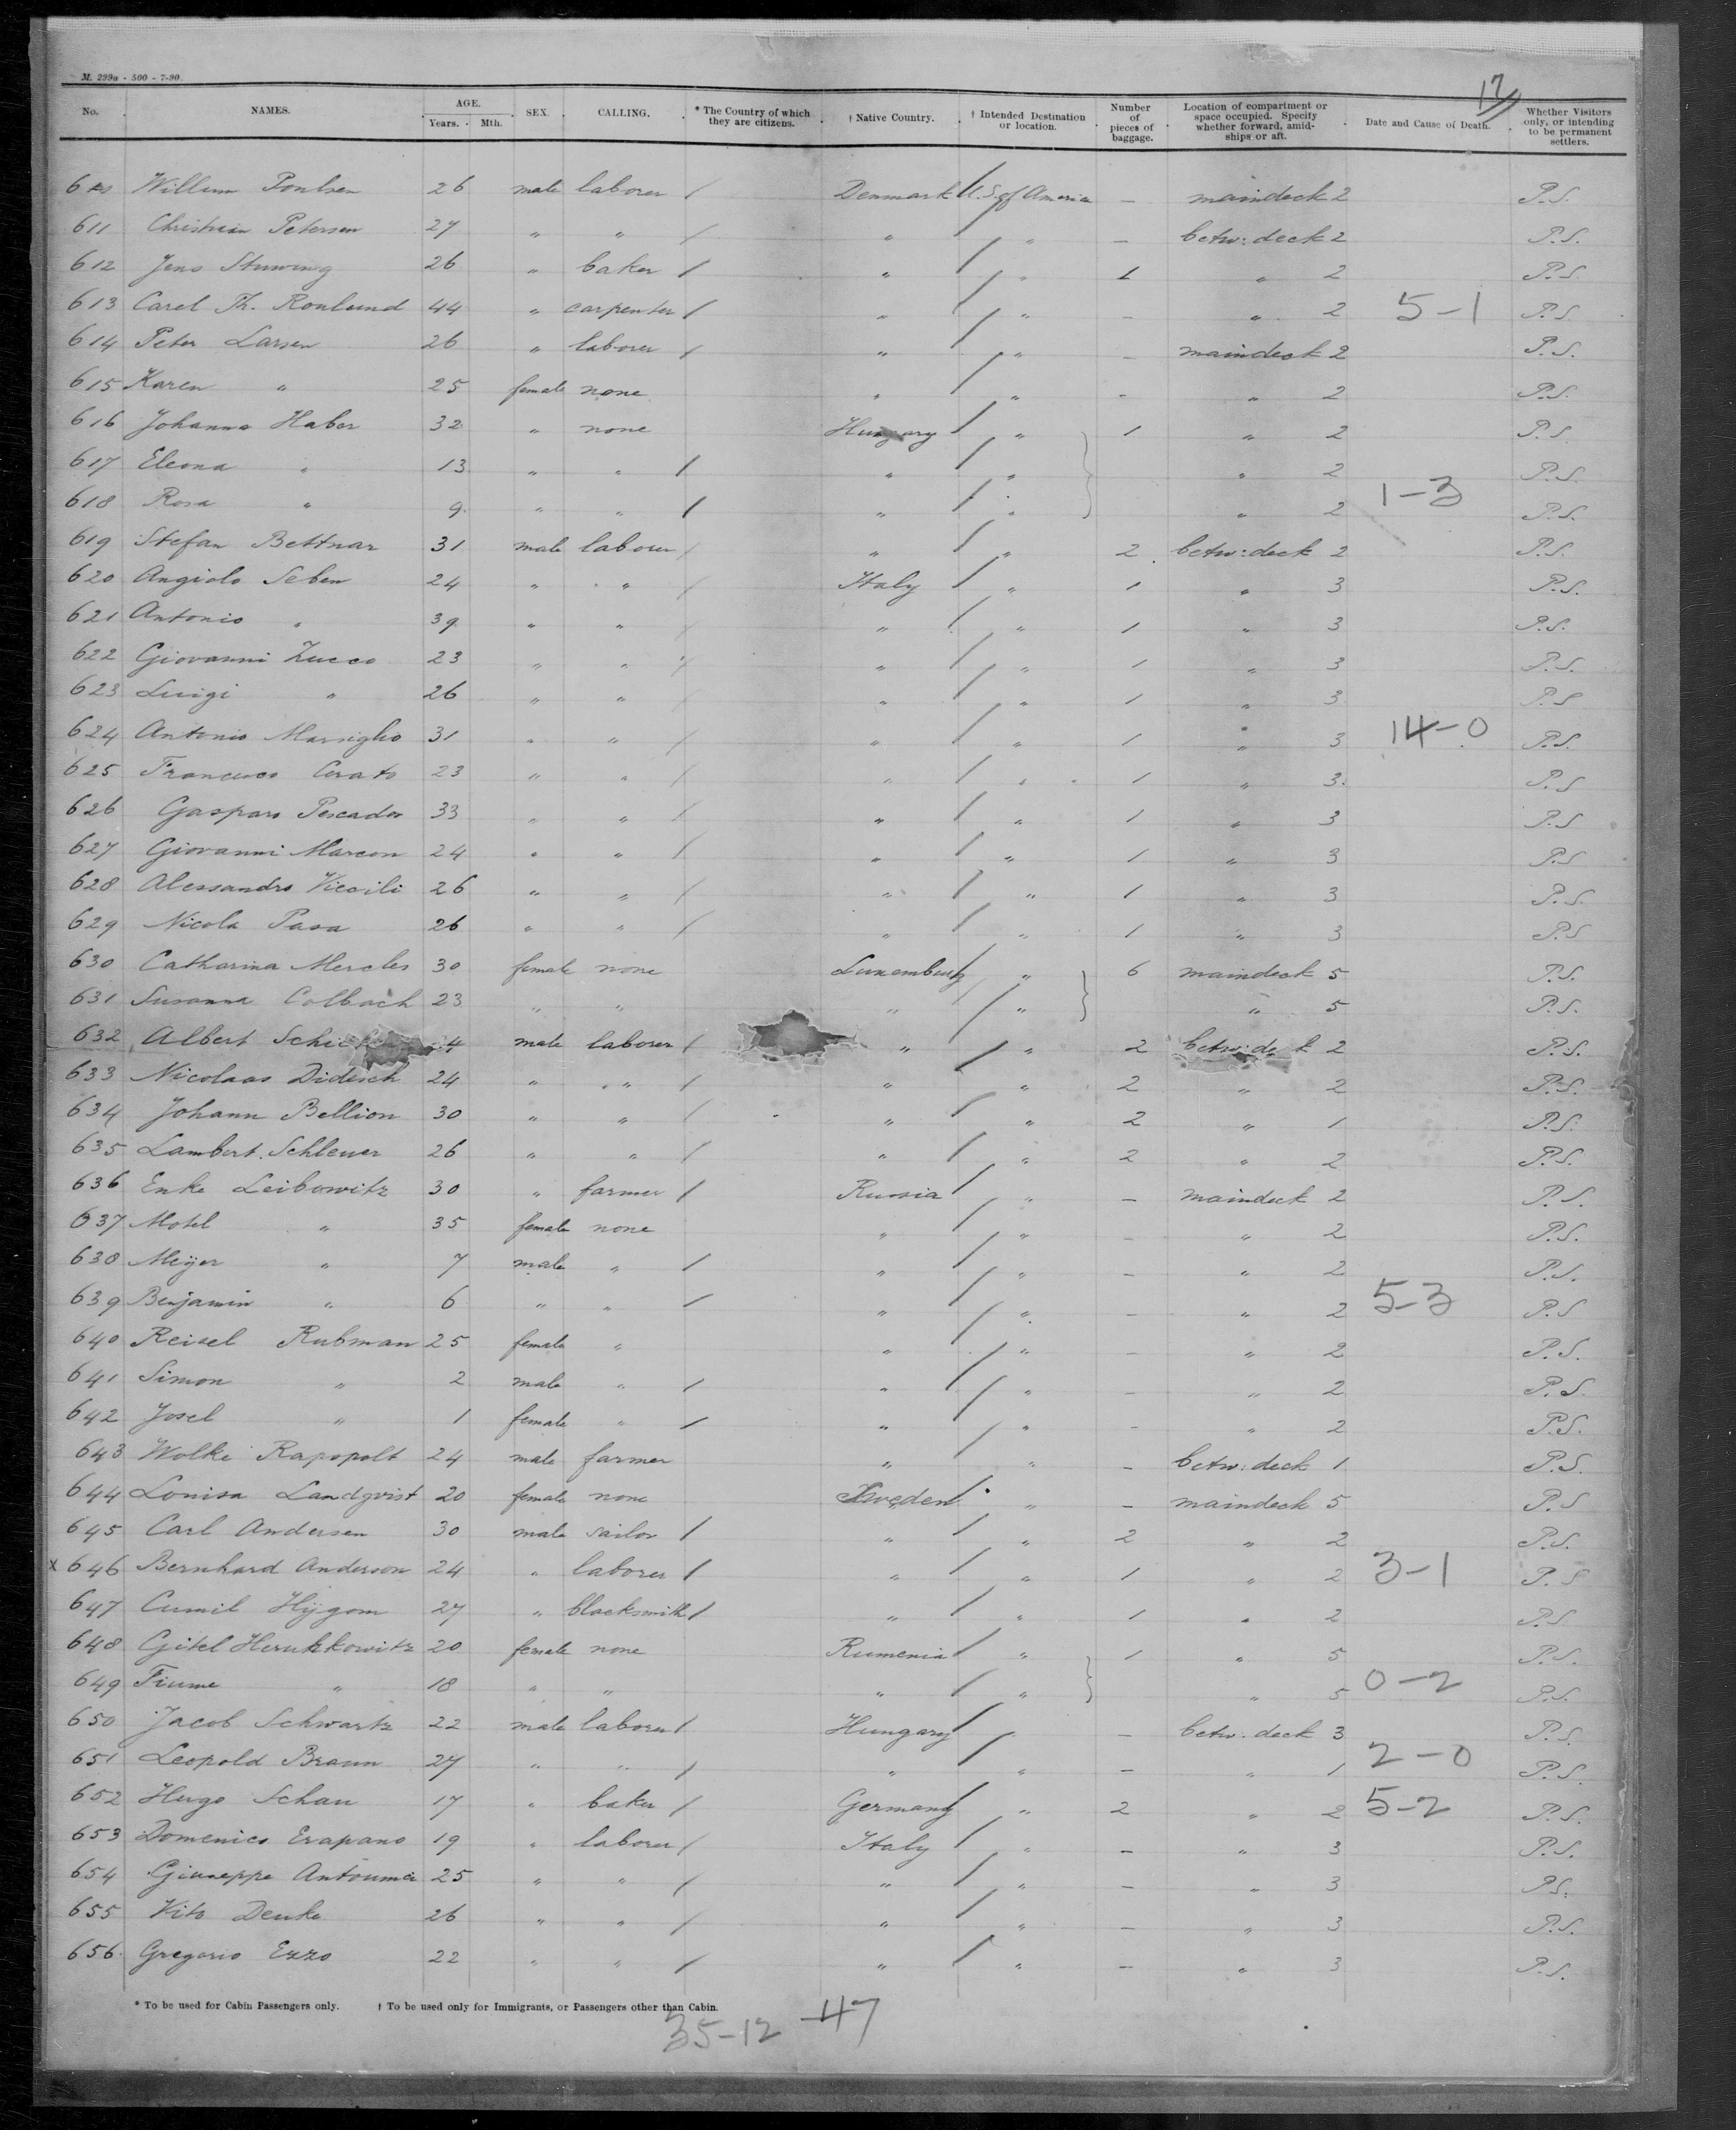 M. 299a - 500 - 7-90.
17
No. NAMES. AGE. Years. Mth. SEX. CALLING. * The Country of which they are citizens. † Native Country. † Intended Destination or location. Number of pieces of baggage. Location of compartment or space occupied. Specify whether forward, amidships or aft. Date and Cause of Death. Whether Visitors only, or intending to be permanent settlers.
Willum Poulsen 26 male laborer / Denmark / U.S. of America — maindeck 2 P.S.
611 Christian Petersen 27 " " / " / " — betw: deck 2 P.S.
612 Jens Stuwing 26 " baker / " / " 1 " 2 P.S.
613 Carel Th. Roulund 44 " carpenter / " / " — " 2 5-1 P.S.
614 Peter Larsen 26 " laborer / " / " — maindeck 2 P.S.
615 Karen " 25 female none " / " — " 2 P.S.
616 Johanna Haber 32 " none Hungary / " 1 " 2 P.S.
617 Eleona " 13 " " / " / " " 2 P.S.
618 Rosa " 9 " " / " / " " 2 1-3 P.S.
619 Stefan Bettnar 31 male laborer / " / " 2 betw: deck 2 P.S.
620 Angiolo Seben 24 " " / Italy / " 1 " 3 P.S.
621 Antonio " 39 " " / " / " 1 " 3 P.S.
622 Giovanni Zucco 23 " " / " / " 1 " 3 P.S.
623 Luigi " 26 " " / " / " 1 " 3 P.S
624 Antonio Marsiglio 31 " " / " / " 1 " 3 14-0 P.S.
625 Francesco Cerato 23 " " / " / " 1 " 3 P.S
626 Gasparo Pescador 33 " " / " / " 1 " 3 P.S
627 Giovanni Marcon 24 " " / " / " 1 " 3 P.S
628 Alessandro Viccili 26 " " / " / " 1 " 3 P.S.
629 Nicola Pasa 26 " " / " / " 1 " 3 P.S
630 Catharina Mercles 30 female none Luxemburg / " 6 maindeck 5 P.S.
631 Susanna Colbach 23 " " " / " " 5 P.S.
632 Albert 4 male laborer / " / " 2 betw: deck 2 P.S.
633 Nicolaas Didesch 24 " " / " / " 2 " 2 P.S.
634 Johann Bellion 30 " " / " / " 2 " 1 P.S.
635 Lambert Schleuer 26 " " / " / " 2 " 2 P.S.
636 Enke Leibowitz 30 " farmer / Russia / " — maindeck 2 P.S.
637 Motel " 35 female none " / " — " 2 P.S.
638 Meijer " 7 male " / " / " — " 2 P.S.
639 Benjamin " 6 " " / " / " — " 2 5-3 P.S
640 Reisel Rubman 25 female " " / " — " 2 P.S.
641 Simon " 2 male " / " / " — " 2 P.S.
642 Josel " 1 female " / " / " — " 2 P.S.
643 Wolke Rapopolt 24 male farmer " / " — betw: deck 1 P.S.
644 Louisa Landqvist 20 female none Sweden / " — maindeck 5 P.S
645 Carl Andersen 30 male sailor / " / " 2 " 2 P.S.
x 646 Bernhard Anderson 24 " laborer / " / " 1 " 2 3-1 P.S
647 Cumil Hijgom 27 " blacksmith / " / " 1 " 2 P.S.
648 Gitel 20 female none Rumenia / " 1 " 5 P.S.
649 Fiume " 18 " " " / " " 5 0-2 P.S.
650 Jacob Schwartz 22 male laborer / Hungary / " — betw. deck 3 P.S.
651 Leopold Braun 27 " " / " / " — " 1 2-0 P.S.
652 Hugo Schau 17 " baker / Germany / " 2 " 2 5-2 P.S.
653 Domenico Erapano 19 " laborer / Italy / " — " 3 P.S.
654 Giuseppe 25 " " / " / " — " 3 P.S.
655 Vito Denke 26 " " / " / " — " 3 P.S.
656 Gregorio Ezzo 22 " " / " / " — " 3 P.S.
* To be used for Cabin Passengers only. † To be used only for Immigrants, or Passengers other than Cabin.
35-12 47